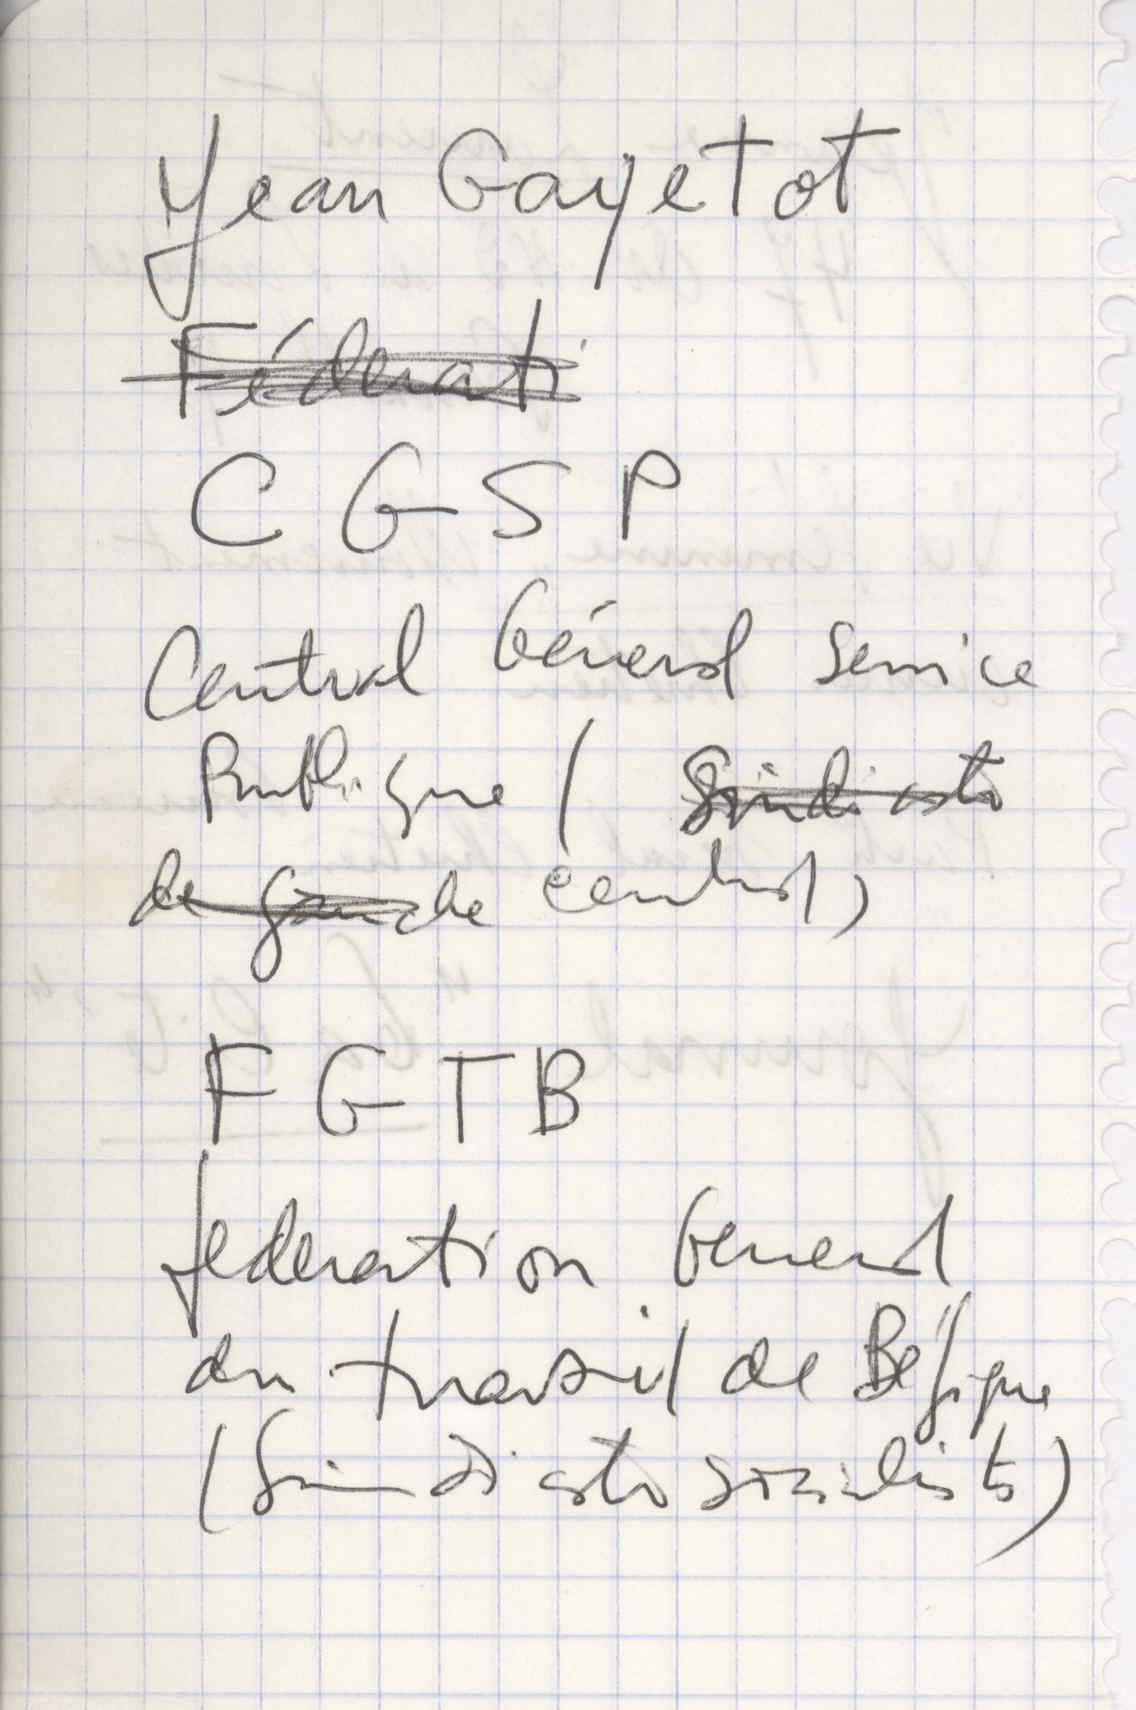 Jean Gayetot
Féderati
C G S P
Central Général Service
Publique ( Sindicato
de gauche central)
F G T B
federation General
du travail de Bélgique
(Sindicato socialista)